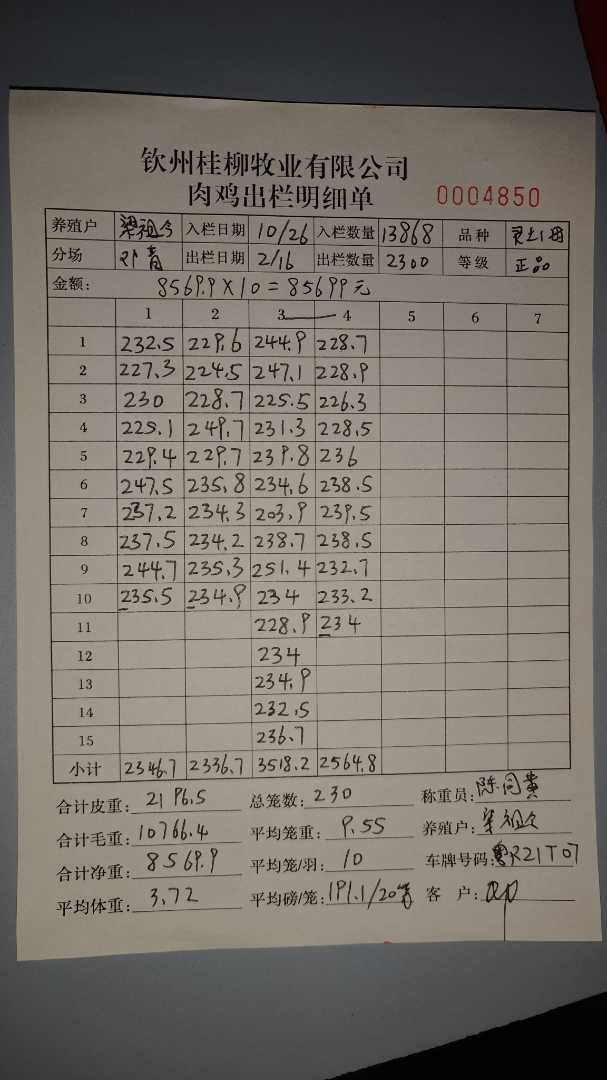 钦州桂柳牧业有限公司
肉鸡出栏明细单 0004850
养殖户 梁祖 入栏日期 10/26 入栏数量 13868 品种
分场 出栏日期 2/16 出栏数量 2300 等级 正品
金额: 8569.9×10=85699元
1 2 3 4 5 6 7
1 232.5 229.6 244.9 228.7
2 227.3 224.5 247.1 228.9
3 230 228.7 225.5 226.3
4 225.1 249.7 231.3 228.5
5 229.4 229.7 239.8 236
6 247.5 235.8 234.6 238.5
7 237.2 234.3 203.9 239.5
8 237.5 234.2 238.7 238.5
9 244.7 235.3 251.4 232.7
10 235.5 234.9 234 233.2
11 228.9 234
12 234
13 234.9
14 232.5
15 236.7
小计 2346.7 2336.7 3518.2 2564.8
合计皮重: 2196.5 总笼数: 230 称重员: 陈
合计毛重: 10766.4 平均笼重: 9.55 养殖户: 祖
合计净重: 8569.9 平均笼/羽: 10 车牌号码: R21T07
平均体重: 3.72 平均磅/笼: 191.1/20 客 户: